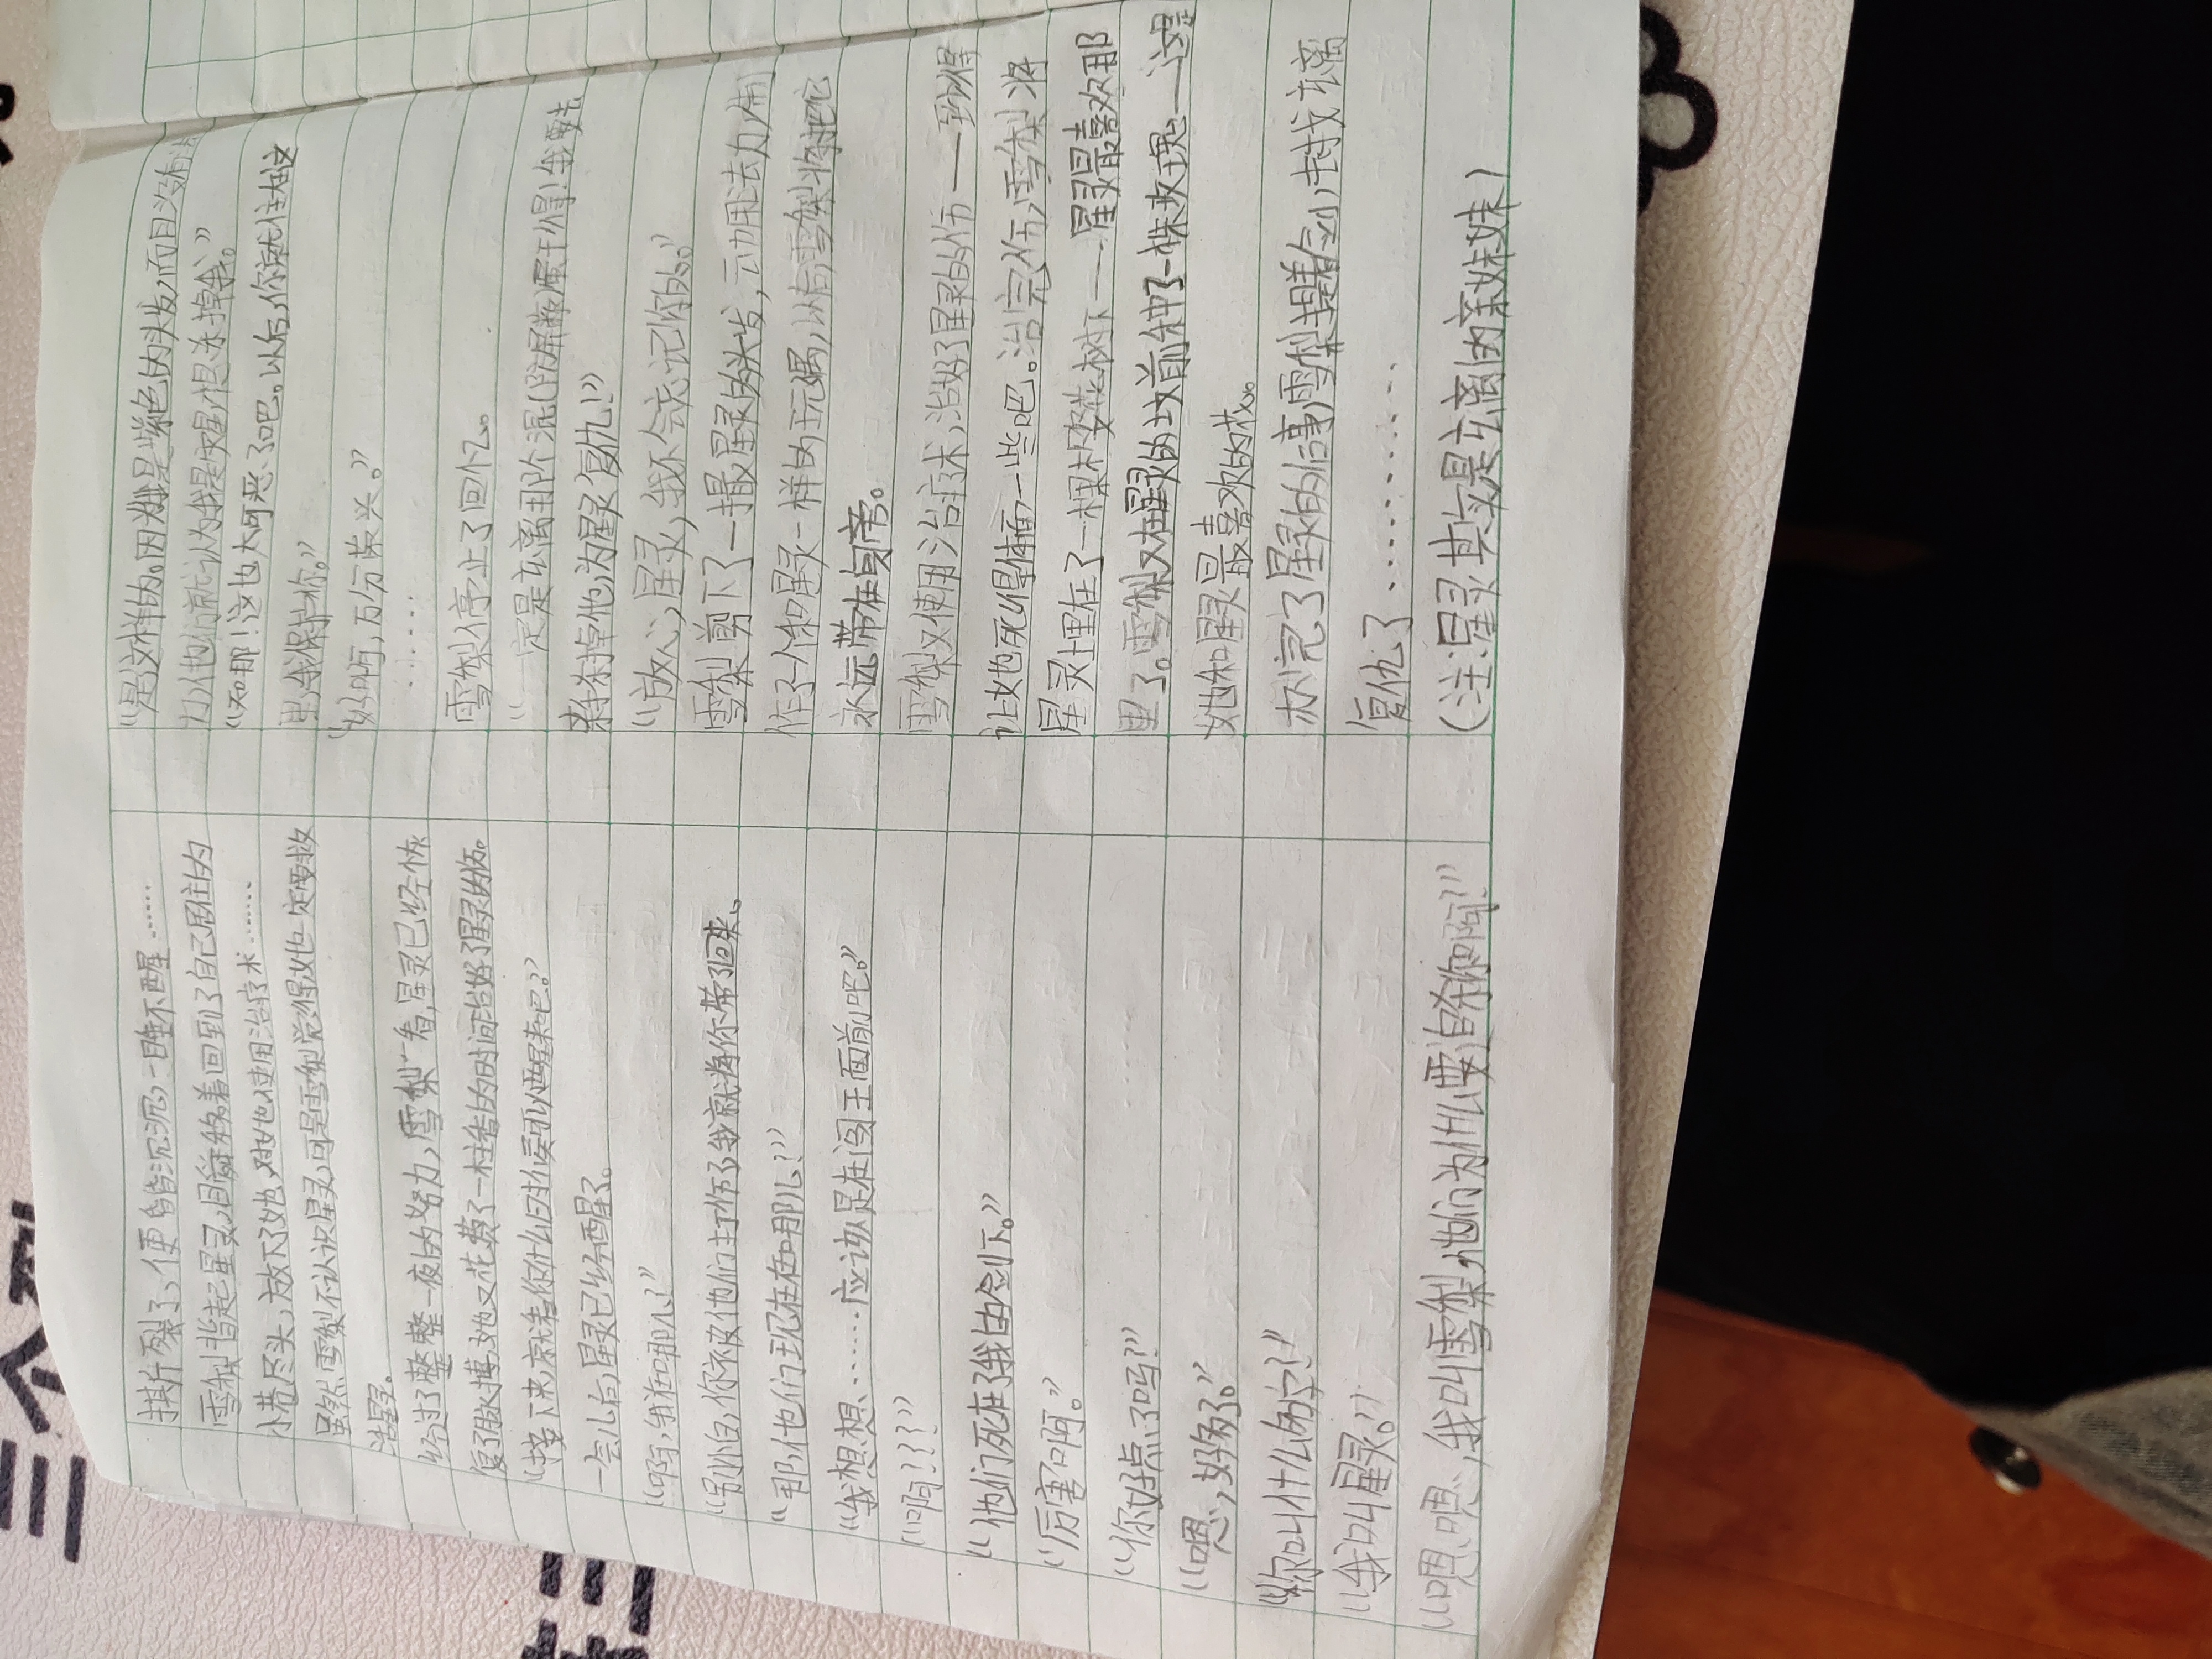 棋斤裂了,便昏昏沉沉,一睡不醒……
雪梨背起星灵,回着回到了自己居住的
小巷尽头,放下了她,对她使用治疗术……
虽然雪梨不认识星灵,可是雪梨觉得她一定要救
活星灵。
经过了整整一夜的努力,雪梨一看,星灵已经恢
复了脉搏,她又花费了一柱香的时间治好了星灵的伤。
“接下来,就看你什么时候可以醒来吧?”
一会儿后,星灵已经醒了。
“啊,我在哪儿?”
“别怕,你被他们打伤了,我就将你带回来。
“那,他们现在在哪儿?”
“我想想……应该是在阎王面前吧。”
“啊????”
“他们死在了我的剑下。”
“厉害啊。”
“你好点了吗?”
“嗯,好多了。”
“你叫什么名字?”
“我叫星灵。”
“嗯嗯,我叫雪梨,他们为什么要追杀你啊?”
“是这样的。因为我是紫色的头发,而且没有法
力,他们就认为我是灾星,想杀掉我。”
“天哪!这也太可恶了吧。以后,你就住在这
里,我保护你。”
“好啊,万分荣兴。”
……
雪梨停止了回忆。
“一定是玄离那个混()屏蔽蛋干得!我要去
亲手杀掉他,为星灵复仇!”
“放心,星灵,我不会忘记你的。”
雪梨剪下了一撮星灵的头发,动用法力,制
作了一个和星灵一样的玩偶,以后,雪梨将把它
永远带在身旁。
雪梨又使用治疗术,治好了星灵的伤——到得
让她死得体面一些吧。治完伤,雪梨将
星灵埋在了一棵樱花树下——星灵最喜欢那
里了。雪梨又在星灵的坟前种了一株玫瑰——这是
她和星灵最喜欢的花。
办完了星灵的后事,雪梨提着剑,去找玄离
复仇了………
(注:星灵其实是玄离的亲妹妹)